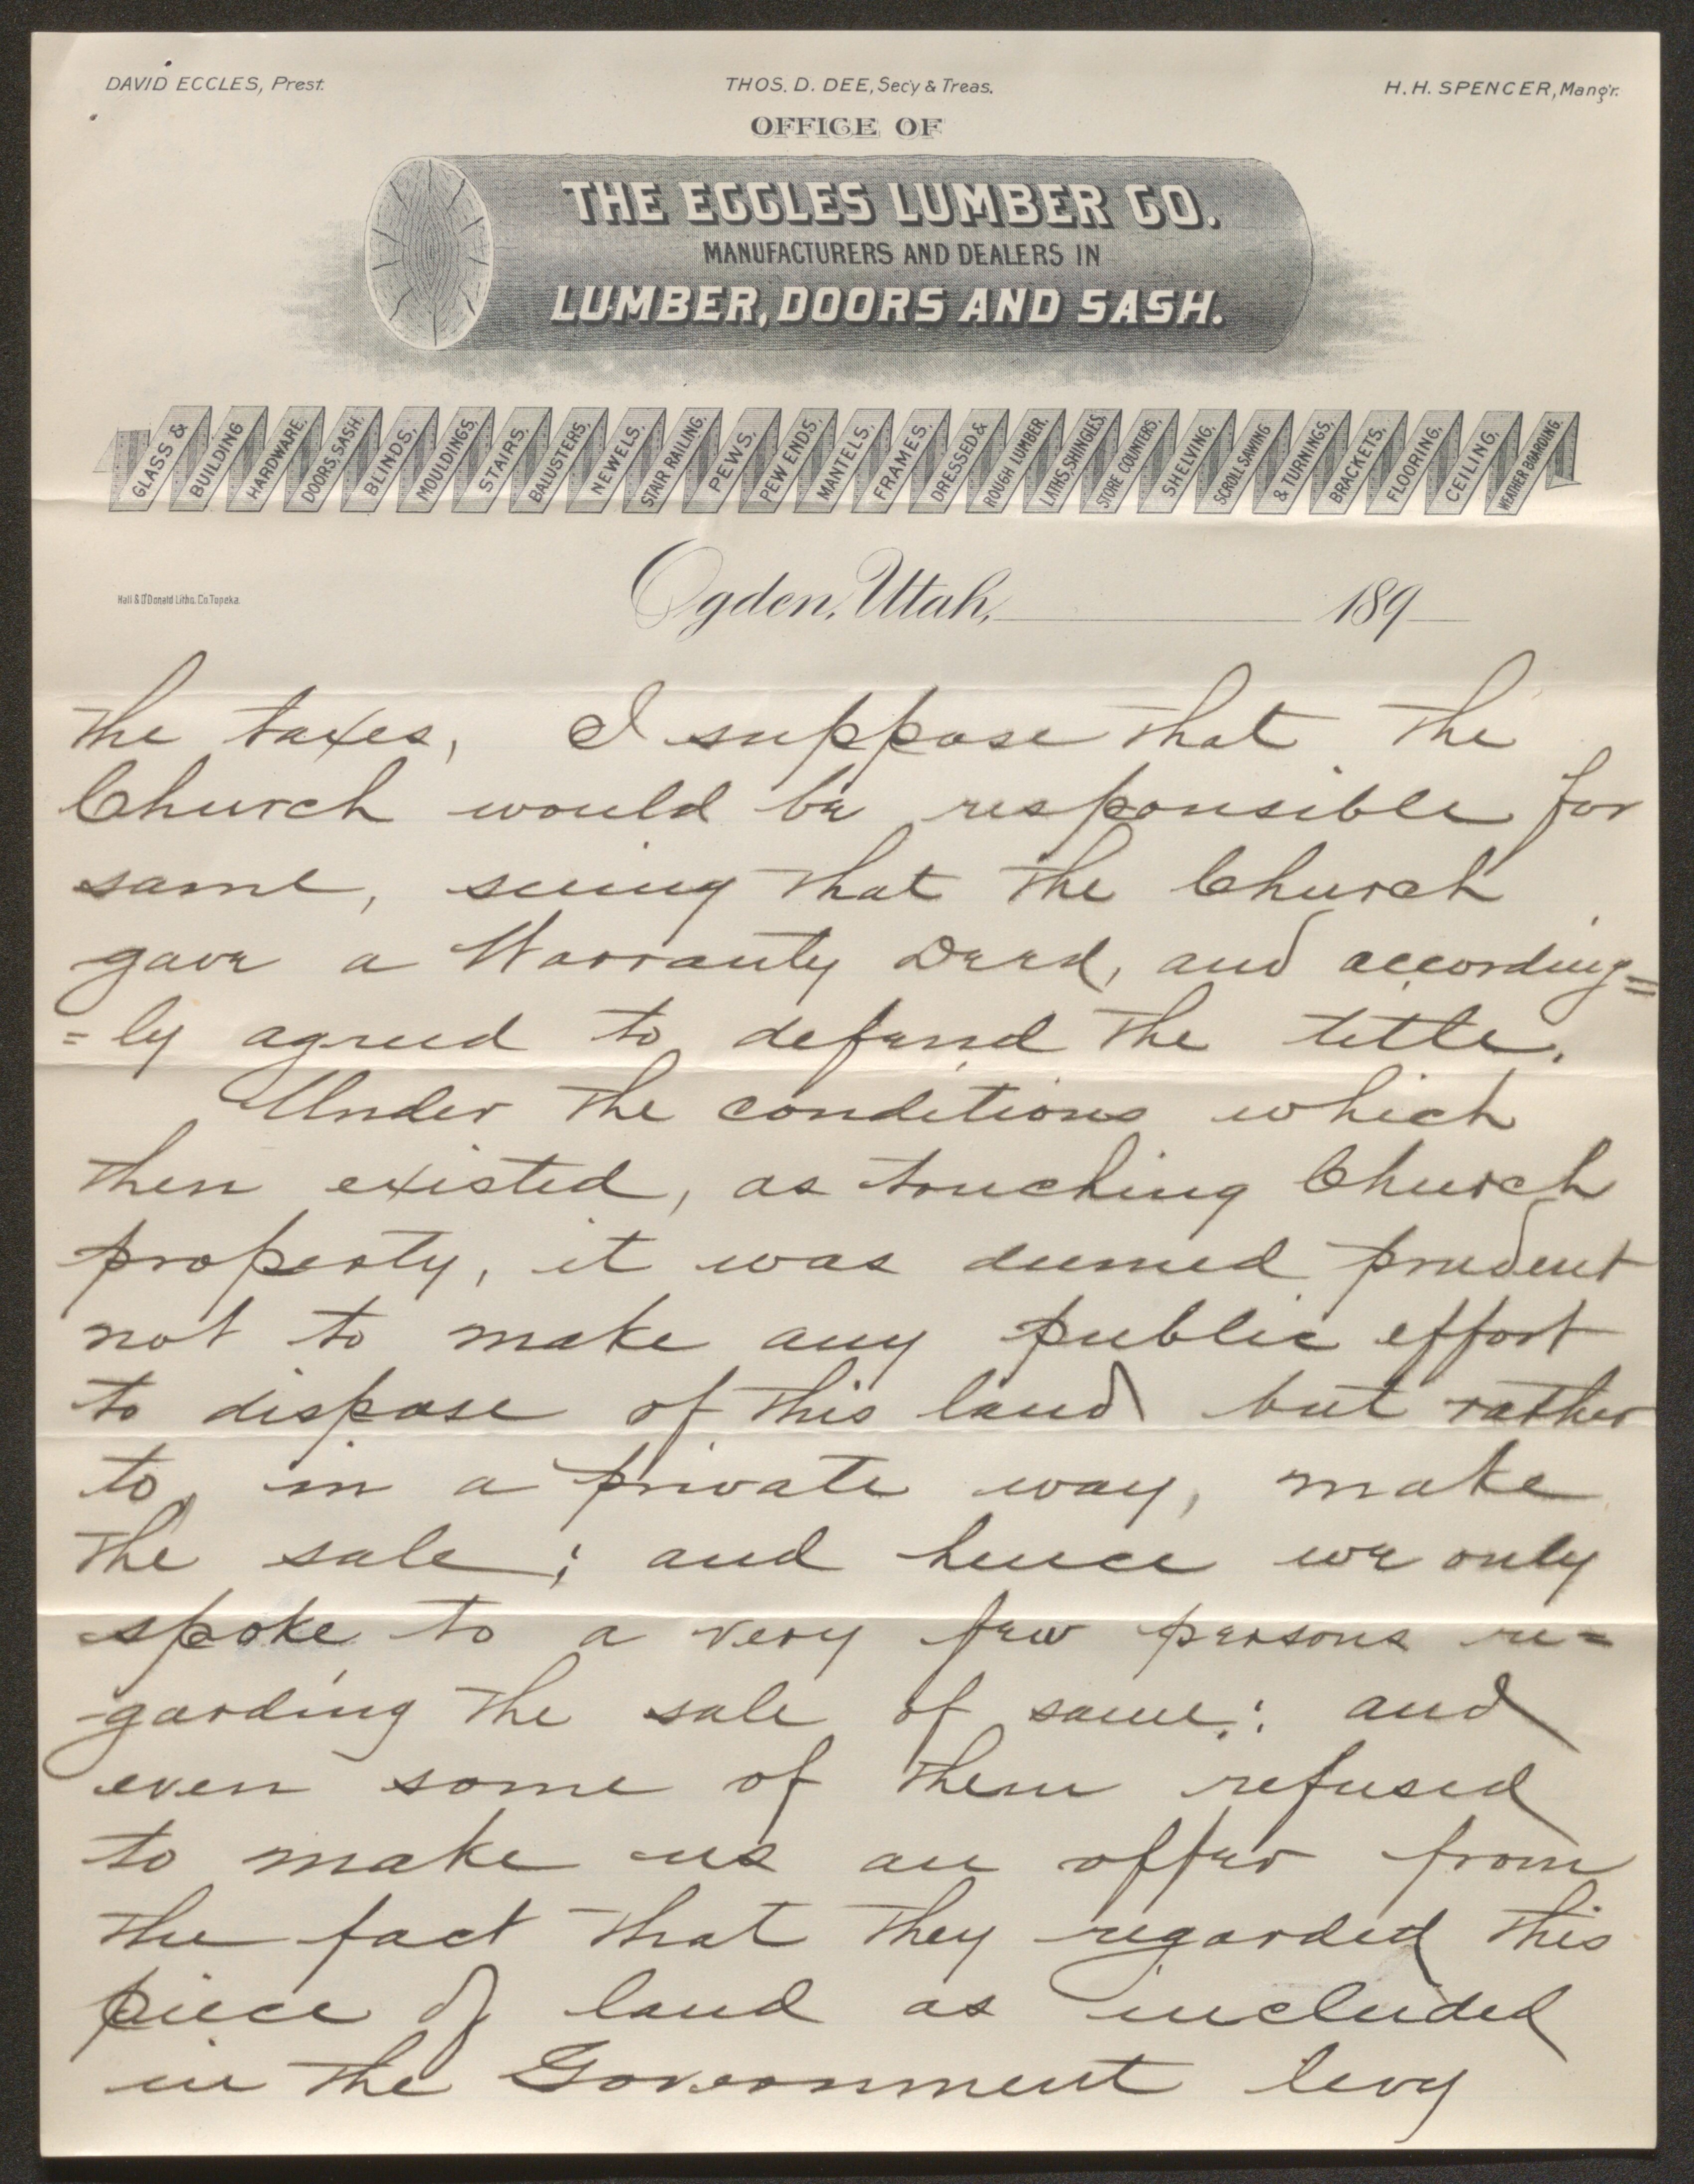 DAVID ECCLES, Prest. THOS. D. DEE, Secy & Treas. H. H. SPENCER, Mang'r.
OFFICE OF
THE ECCLES LUMBER CO.
MANUFACTURERS AND DEALERS IN
LUMBER, DOORS AND SASH.
GLASS & BUILDING HARDWARE. DOORS, SASH, BLINDS, MOULDINGS, STAIRS, BALUSTERS, NEWELS, STAIR RAILING, PEWS, PEW ENDS, MANTELS, FRAMES, DRESSED & ROUGH LUMBER, LATHS, SHINGLES, STORE COUNTERS, SHELVING, SCROLL SAWING & TURNINGS, BRACKETS, FLOORING, CEILING, WEATHER BOARDING.
Hall & O'Donald Litho. Co. Topeka.
Ogden, Utah, 189
the taxes, I suppose that the
Church would be responsible for
same, seeing that the Church
gave a Warranty Deed, and according=
=ly agreed to defend the title.
Under the conditions which
then existed, as touching Church
property, it was deemed prudent
not to make any public effort
to dispose of this land but rather
to, in a private way, make
the sale; and hence we only
spoke to a very few persons re=
-garding the sale of same; and
even some of them refused
to make us an offer from
the fact that they regarded this
piece of land as included
in the Government levy